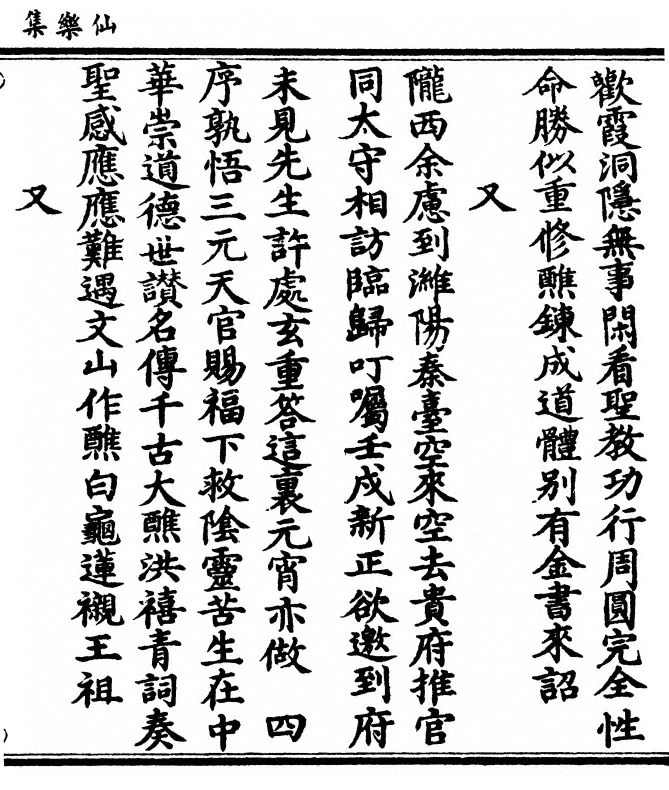 仙樂集
歡霞洞隱無事閑看聖教功行周圓完全性
命勝似重修醮鍊成道體別有金書來詔
又
隴西余慮到濰陽秦臺空來空去貴府推官
同太守相訪臨歸叮囑壬戌新正欲邀到府
未見先生許處玄重答這裏元宵亦做　四
序孰悟三元天官賜福下救陰靈苦生在中
華崇道德世讃名傳千古大醮洪禧青詞奏
聖感應應難遇文山作醮白龜蓮襯王祖
又